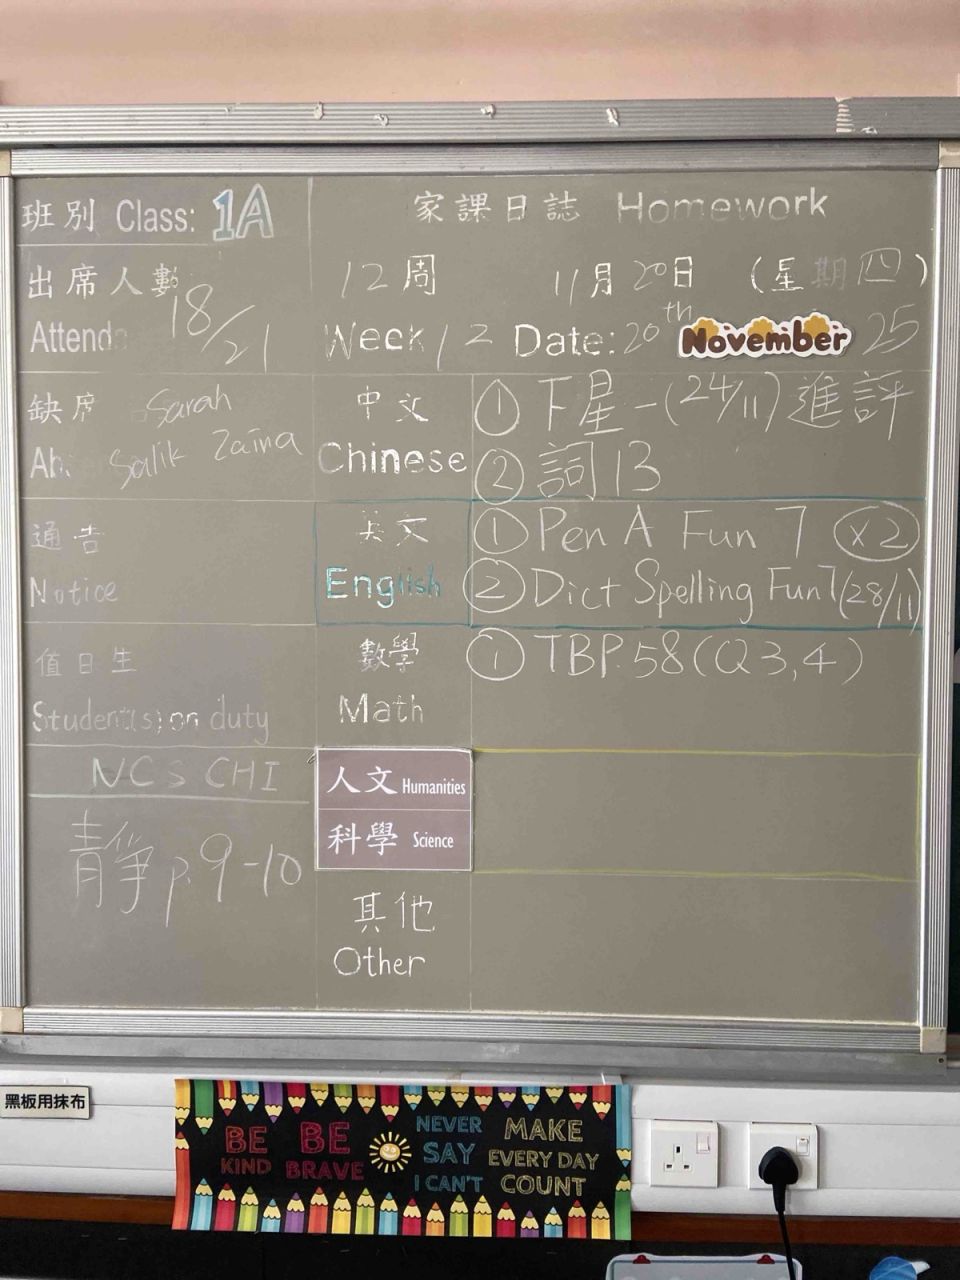 班別 Class: 1A
家課日誌 Homework
出席人數
Attend 18/21
12周 11月20日 (星期四)
Week 12 Date: 20th November 25
缺席 Sarah
Ab. Salik Zaina
中文
Chinese
① 下星一(24/11)進評
② 詞13
通告
Notice
英文
English
① Pen A Fun 7 (x2)
② Dict Spelling Fun 7(28/11)
值日生
Student(s) on duty
數學
Math
① TBP.58(Q3,4)
NCS CHI
青爭 p.9-10
人文 Humanities
科學 Science
其他
Other
黑板用抹布
BE KIND
BE BRAVE
NEVER SAY I CAN'T
MAKE EVERY DAY COUNT